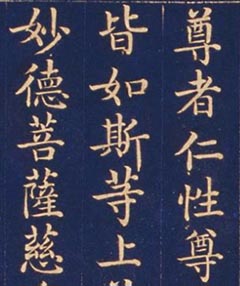 尊者仁性尊
皆如斯等上
妙德菩薩慈